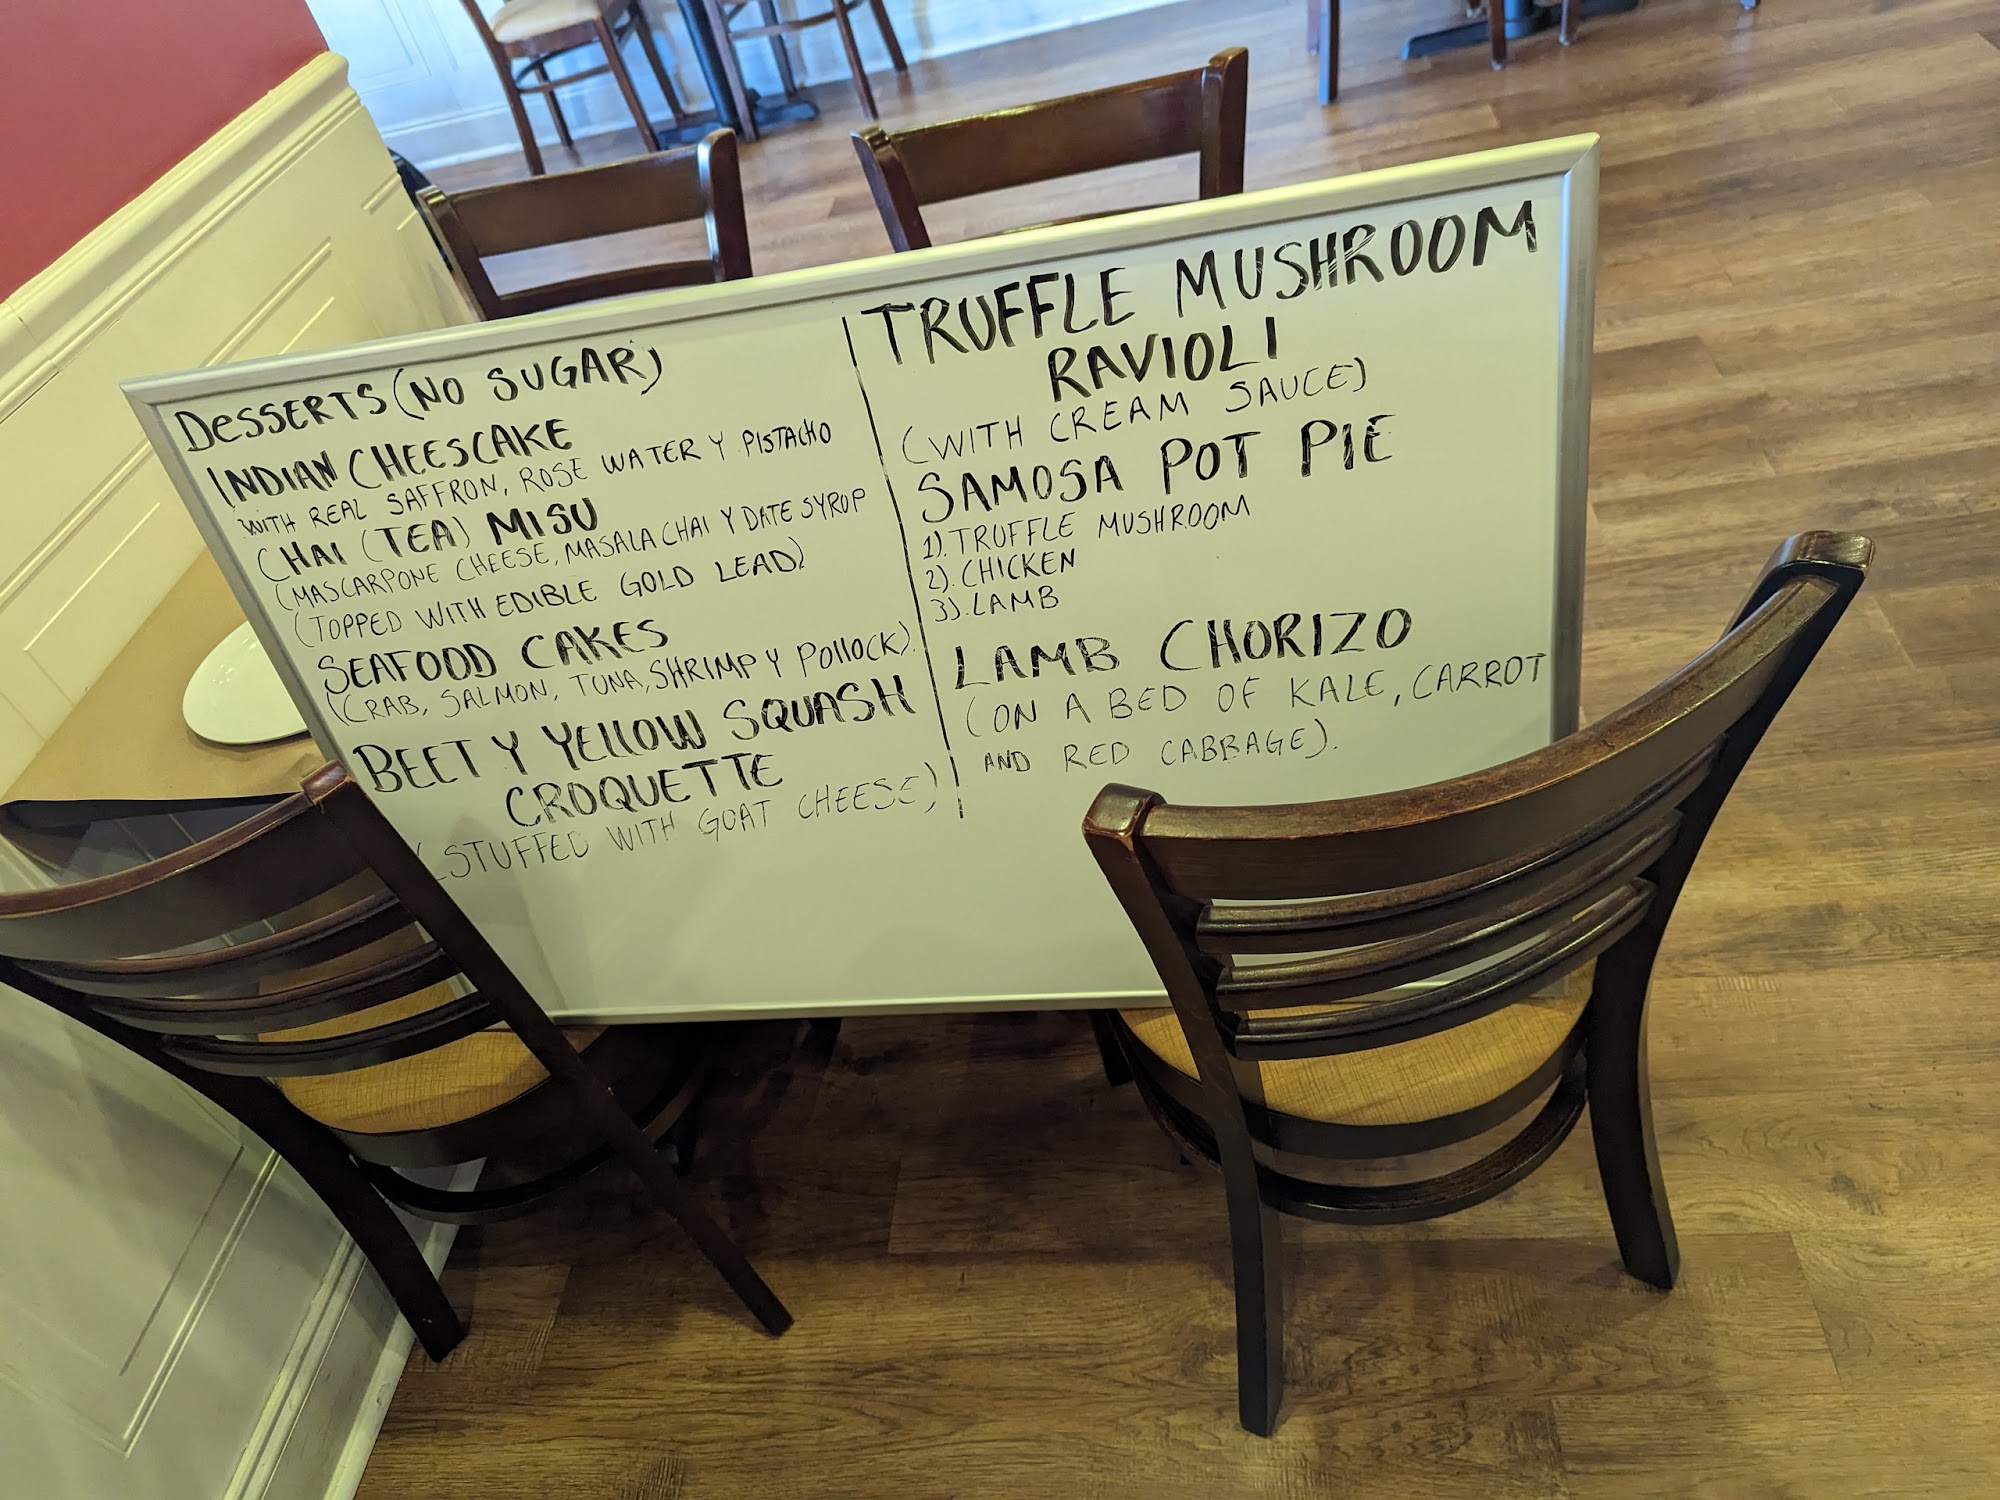 DESSERTS (NO SUGAR)
INDIAN CHEESCAKE
WITH REAL SAFFRON, ROSE WATER Y PISTACHO
CHAI (TEA) MISU
(MASCARPONE CHEESE, MASALA CHAI Y DATE SYROP
(TOPPED WITH EDIBLE GOLD LEAD)
SEAFOOD CAKES
(CRAB, SALMON, TUNA, SHRIMP Y POLLOCK).
BEET Y YELLOW SQUASH
CROQUETTE
(STUFFED WITH GOAT CHEESE)
TRUFFLE MUSHROOM
RAVIOLI
(WITH CREAM SAUCE)
SAMOSA POT PIE
1). TRUFFLE MUSHROOM
2). CHICKEN
3). LAMB
LAMB CHORIZO
(ON A BED OF KALE, CARROT
AND RED CABBAGE).